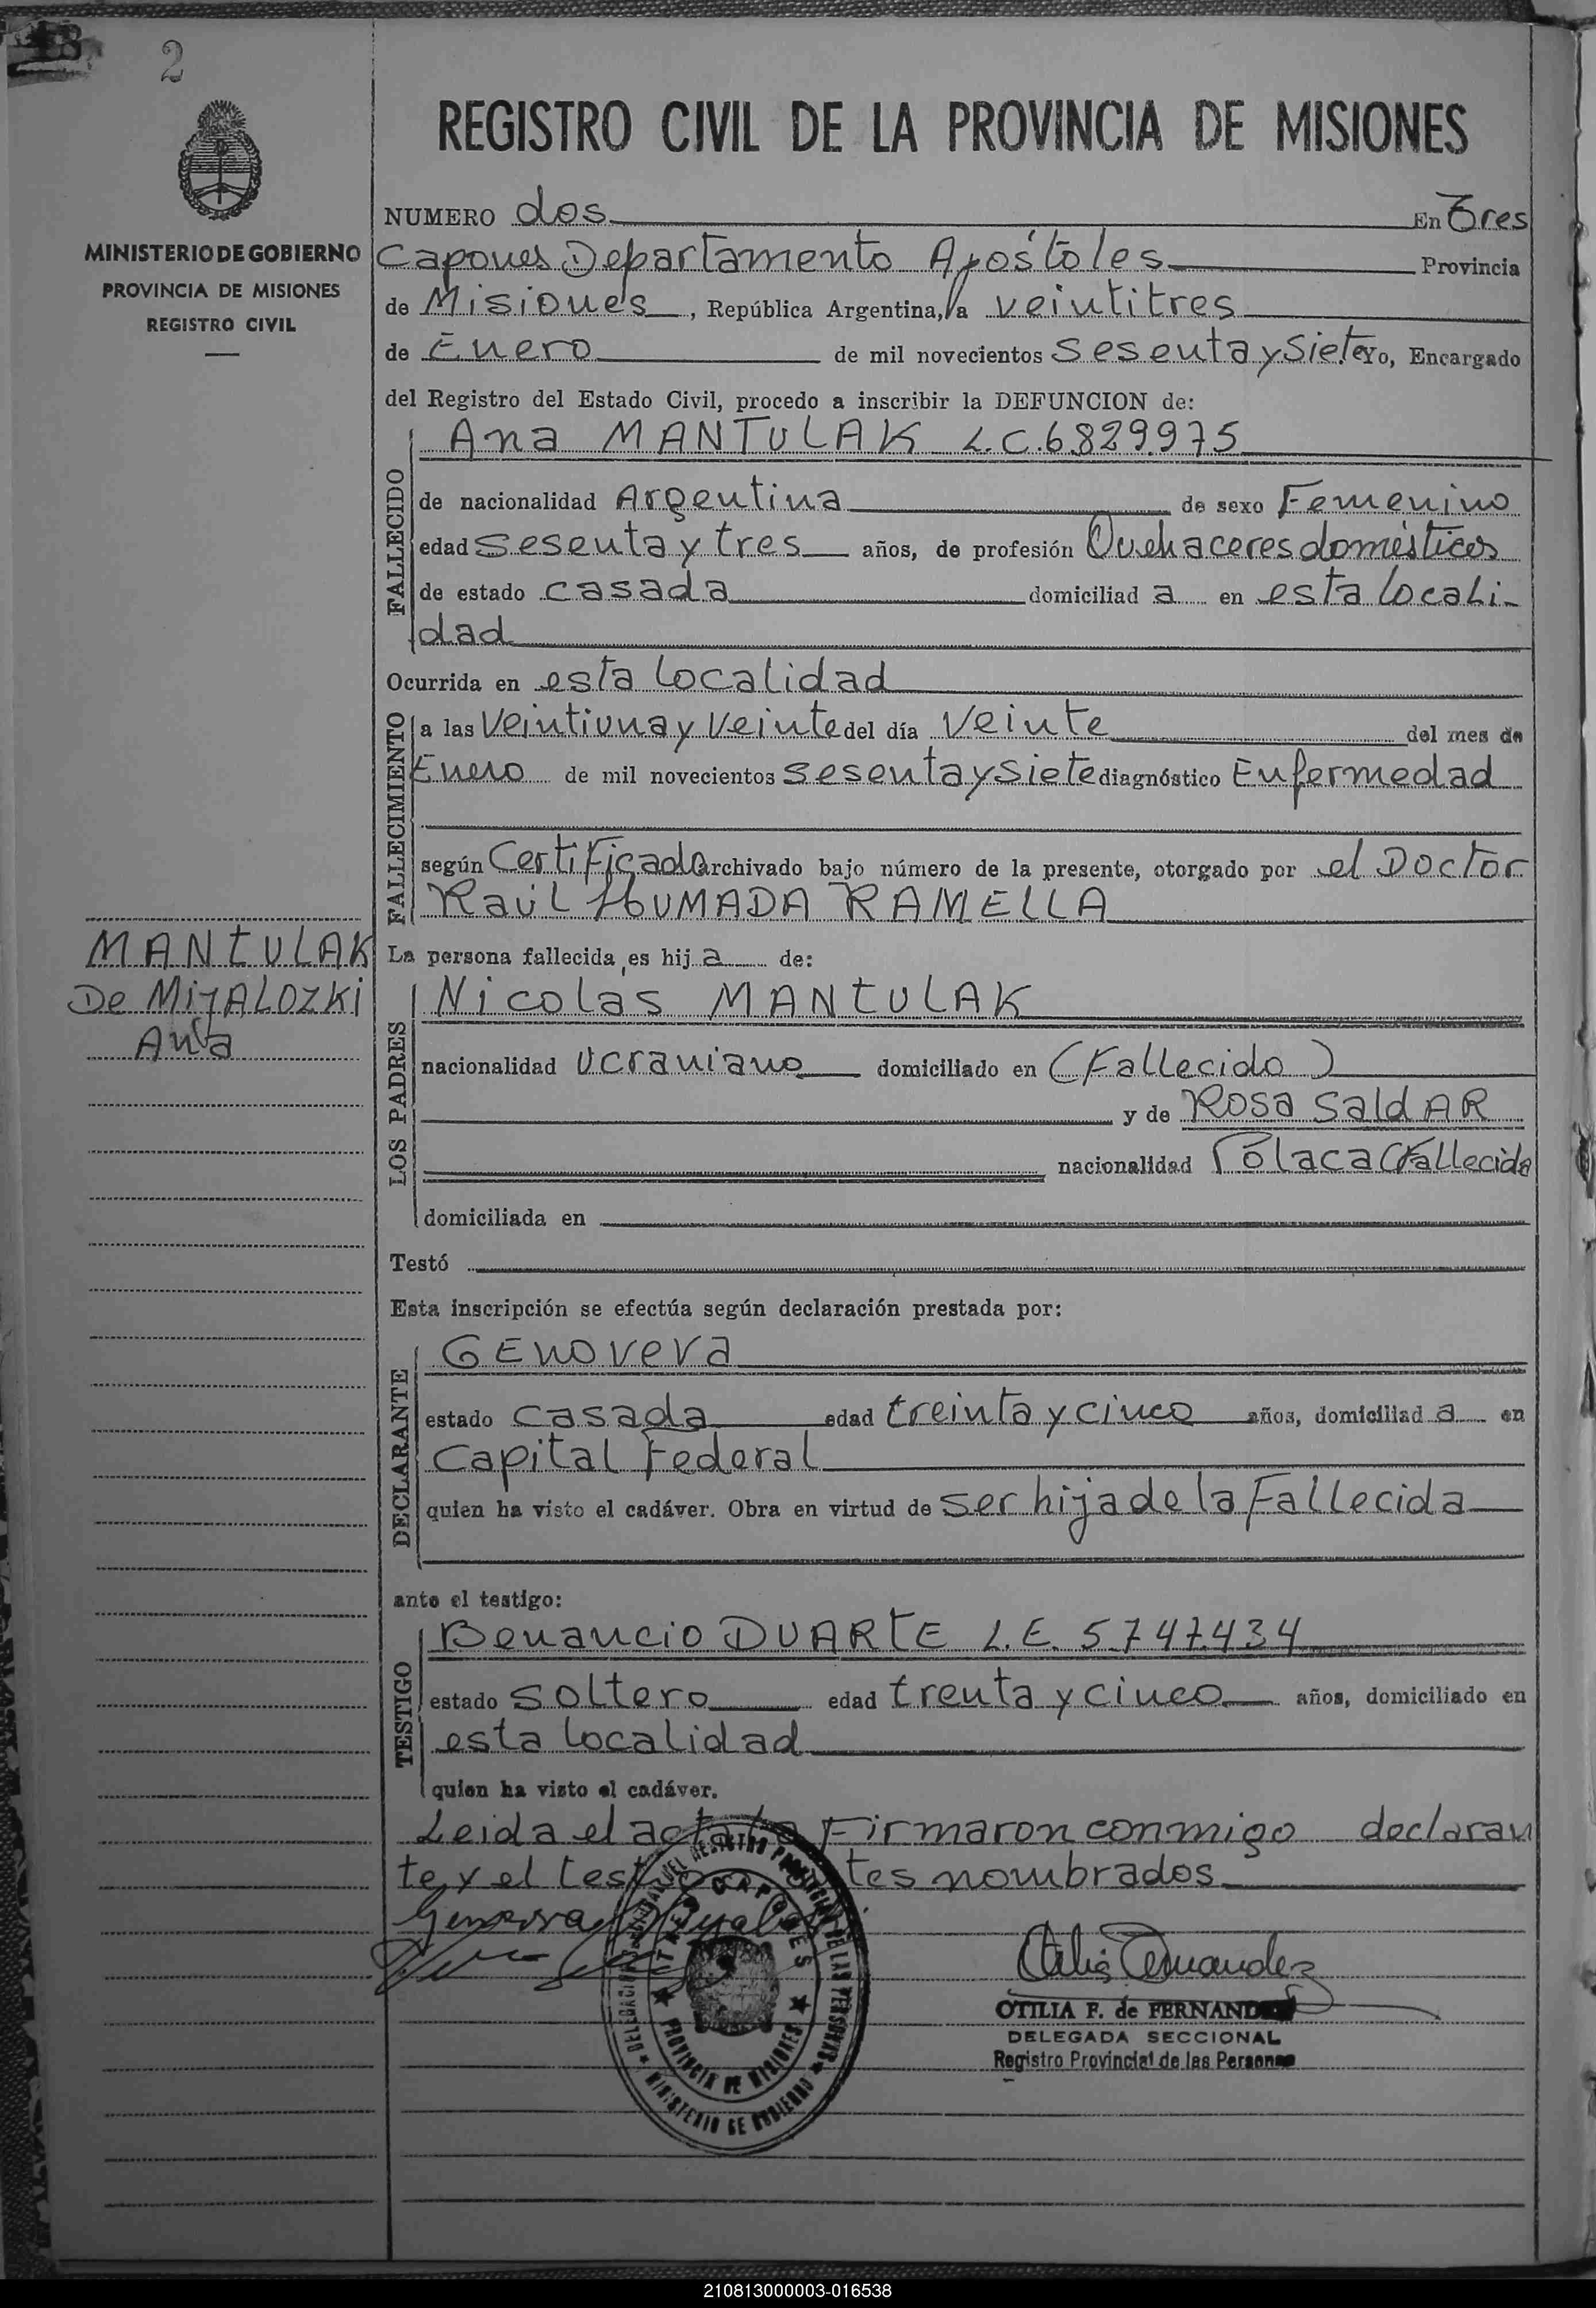 2
REGISTRO CIVIL DE LA PROVINCIA DE MISIONES
MINISTERIO DE GOBIERNO
PROVINCIA DE MISIONES
REGISTRO CIVIL
NUMERO dos En Tres
Capones Departamento Apóstoles Provincia
de Misiones, República Argentina, a veintitres
de Enero de mil novecientos sesenta y Siete Yo, Encargado
del Registro del Estado Civil, procedo a inscribir la DEFUNCION de:
FALLECIDO
Ana MANTULAK L.C. 6.829.975
de nacionalidad Argentina de sexo Femenino
edad sesenta y tres años, de profesión Quehaceres domésticos
de estado casada domiciliad a en esta locali-
dad
Ocurrida en esta localidad
FALLECIMIENTO
a las Veintiuna y Veinte del día Veinte del mes de
Enero de mil novecientos sesenta y Siete diagnóstico Enfermedad
según Certificado archivado bajo número de la presente, otorgado por el Doctor
Raúl AHUMADA RAMELLA
MANTULAK
De MijALOZKi
Ana
La persona fallecida es hij a de:
LOS PADRES
Nicolas MANTULAK
nacionalidad Ucraniano domiciliado en (Fallecido)
y de Rosa SaldAR
nacionalidad Polaca (Fallecida
domiciliada en
Testó
Esta inscripción se efectúa según declaración prestada por:
DECLARANTE
GENOVEVA
estado casada edad treinta y cinco años, domiciliad a en
Capital Federal
quien ha visto el cadáver. Obra en virtud de ser hija de la Fallecida
ante el testigo:
TESTIGO
Benancio DUARTE L.E. 5.747.434
estado soltero edad trenta y cinco años, domiciliado en
esta localidad
quien ha visto el cadáver.
Leida el acta la Firmaron conmigo declaran
te y el testigo tes nombrados
Otilia Fernandez
OTILIA F. de FERNANDEZ
DELEGADA SECCIONAL
Registro Provincial de las Personas
REGISTRO PROVINCIAL DE LAS PERSONAS
TRES CAPONES
PROVINCIA DE MISIONES
MINISTERIO DE GOBIERNO
210813000003-016538